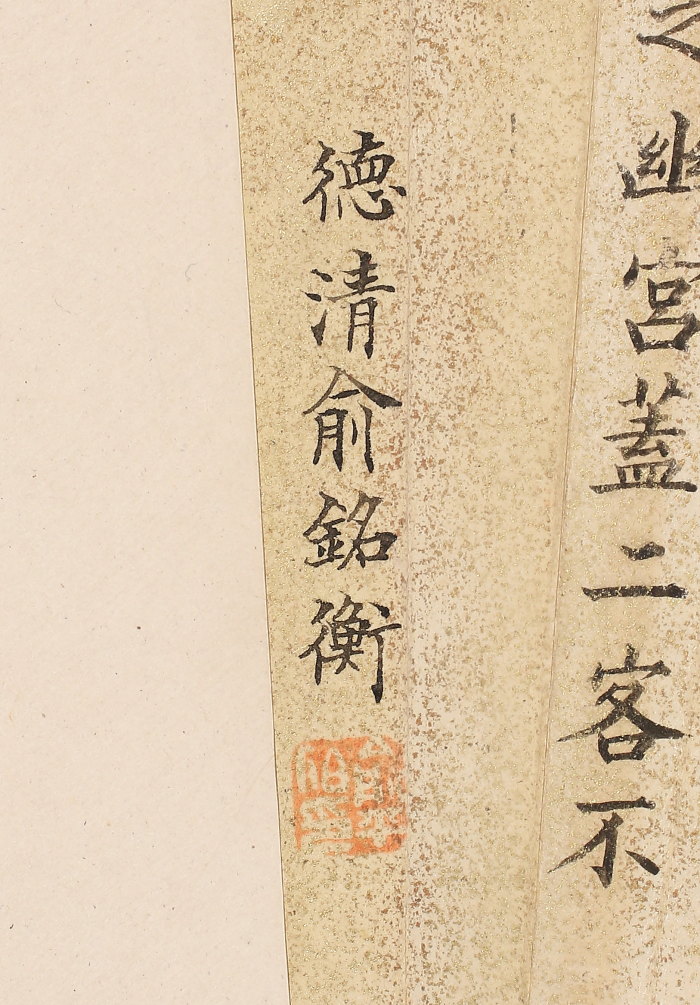 之幽宮蓋二客不
德清俞銘衡